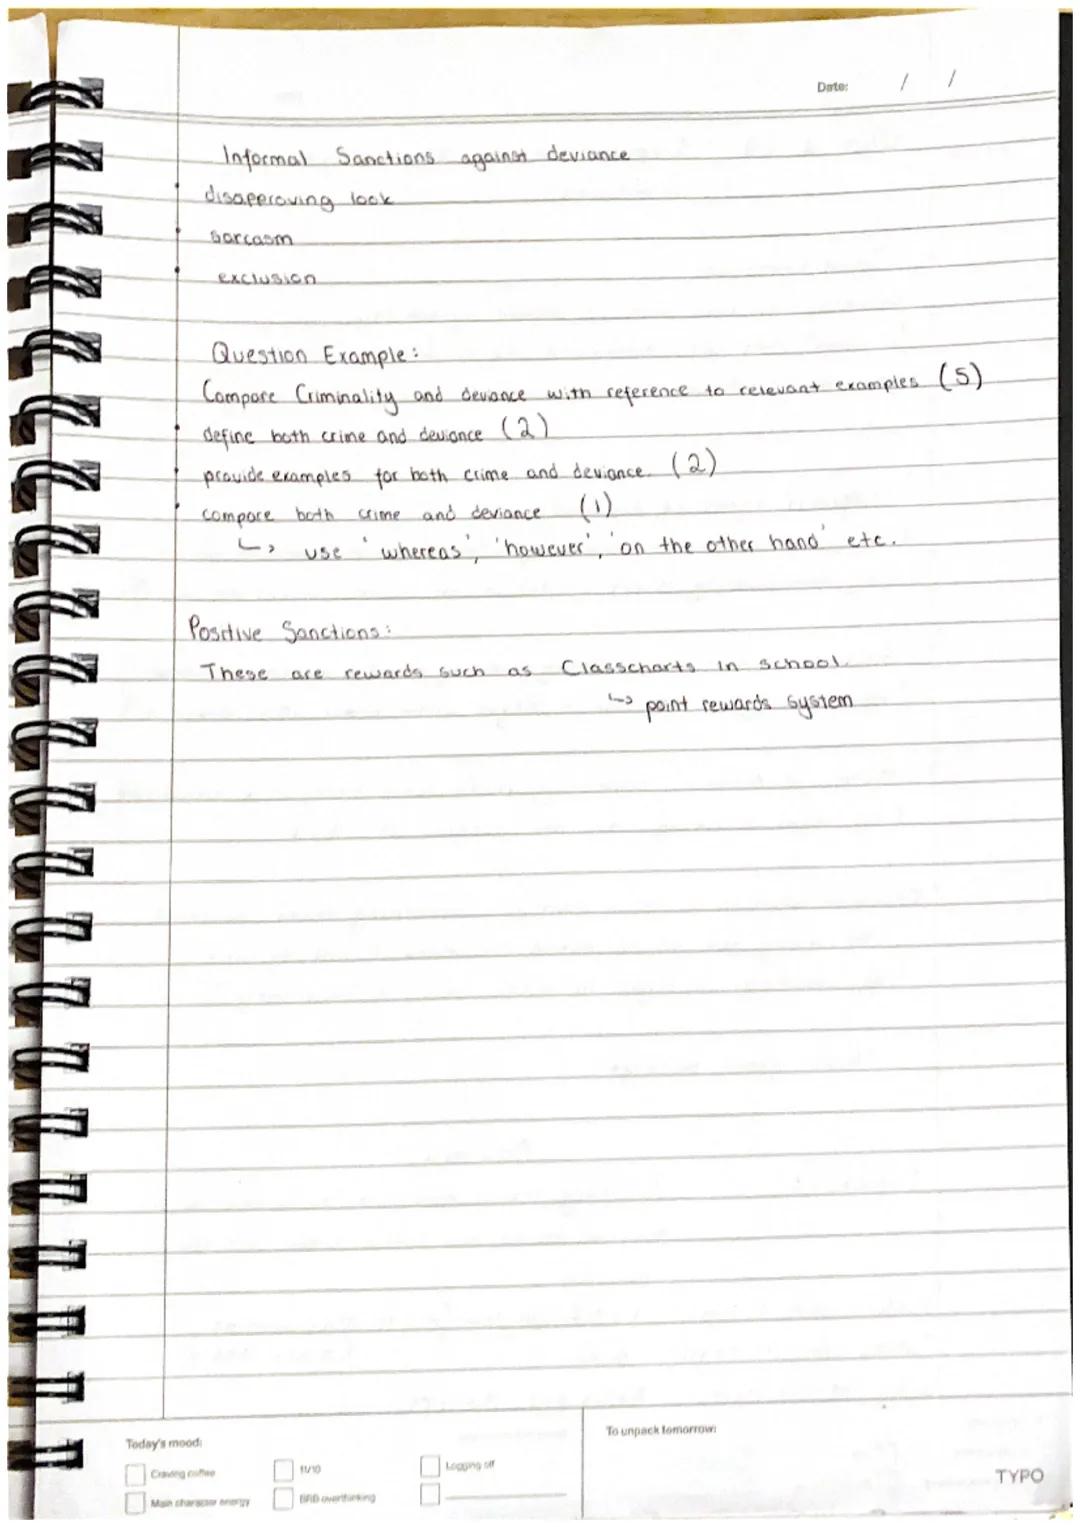 Date: / /
Informal Sanctions against deviance
• disapproving look
sarcasm
• exclusion
Question Example:
Compare Criminality and deviance with reference to relevant examples (5)
• define both crime and deviance (2)
• provide examples for both crime and deviance. (2)
• compare both crime and deviance (1)
↳ use 'whereas', 'however', 'on the other hand' etc.
Positive Sanctions:
These are rewards such as Classcharts in school.
↳ point rewards system
Today's mood:
To unpack tomorrow:
Craving coffee
11/10
Logging off
Main character energy
BRB overthinking
TYPO